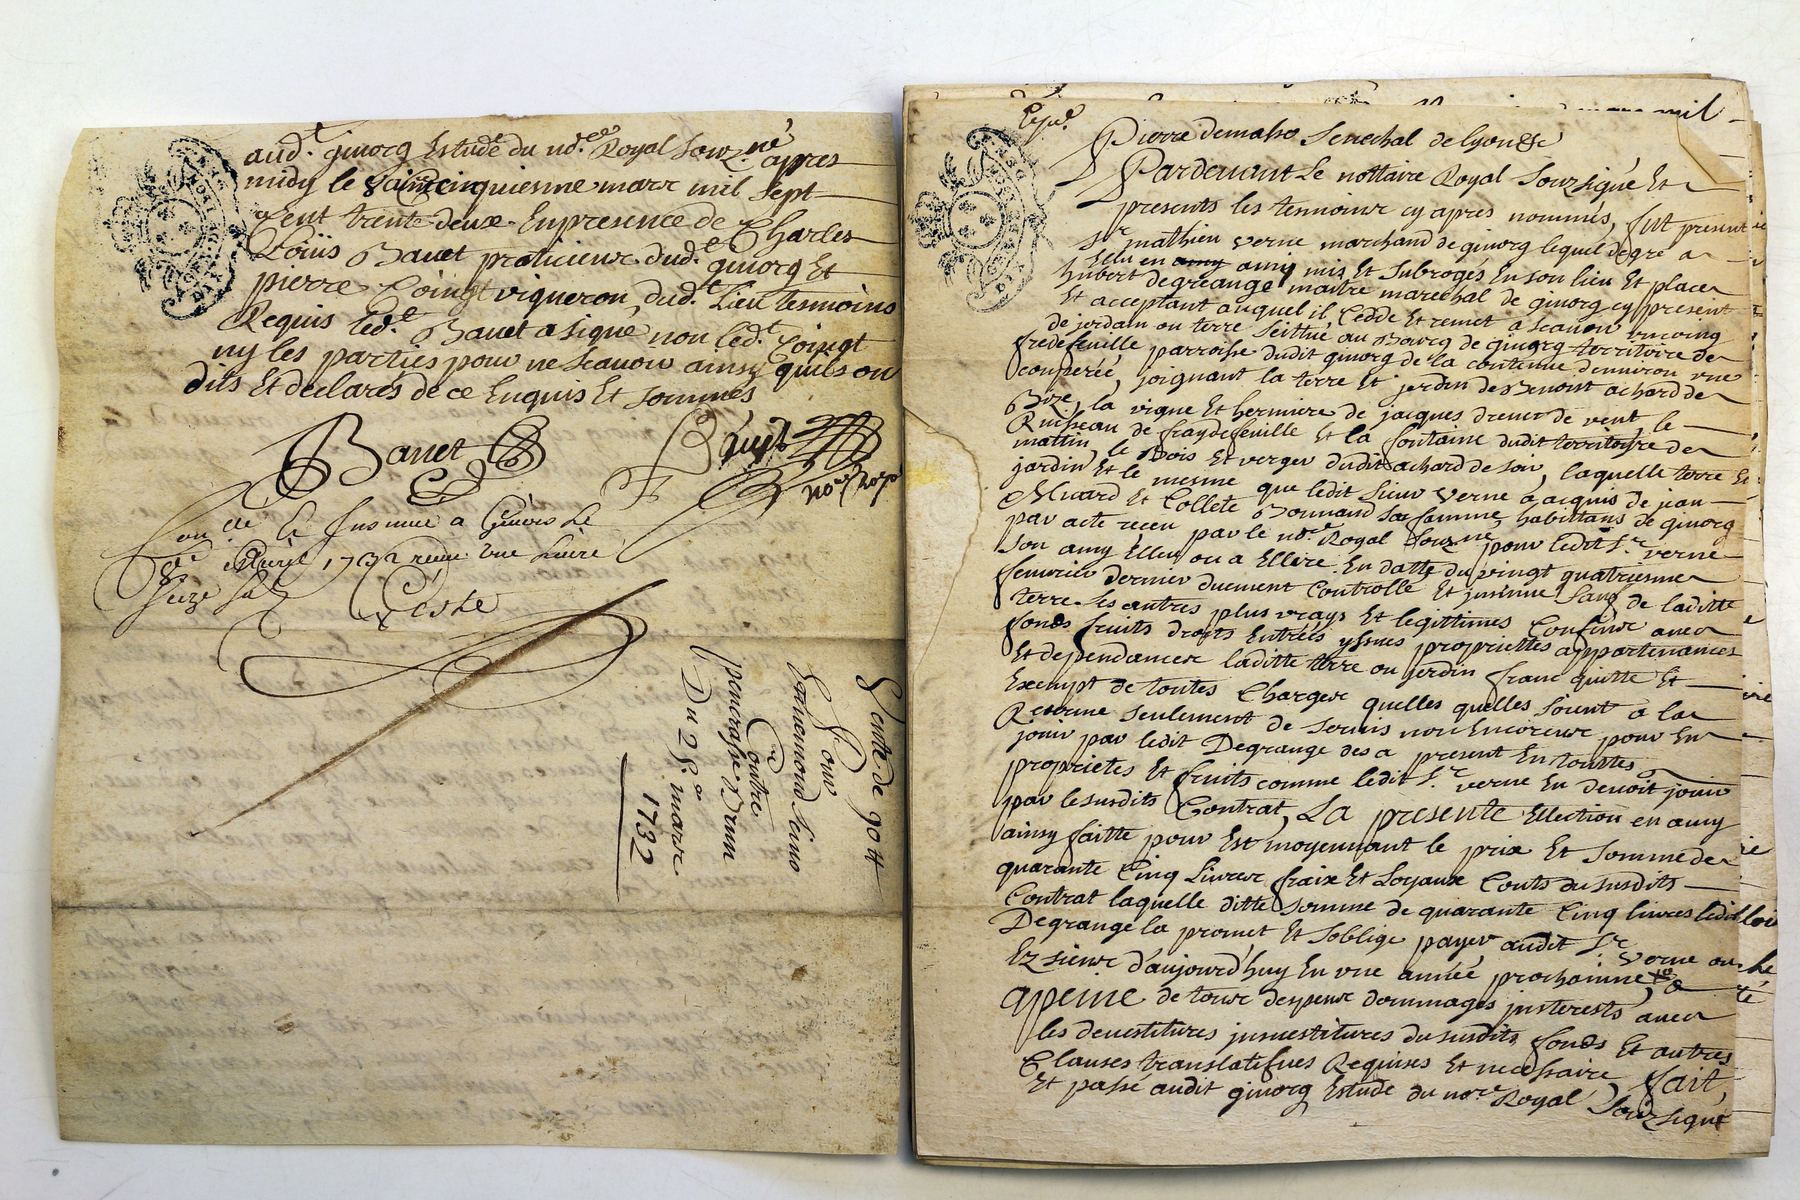 aud.t givorg Estude du no.re Royal Souz.né apres
midy le vaintcinquiesme mars mil sept
Cent trente deux En presence de Charles
Loüis Bauet praticient dud.t givorg Et
pierre Coingt vigneron dud.t Lieu tesmoins
Requis led.t Bauet a signé non led.t Coingt
ny les parties pour ne scauoir ainsy quils on
dits Et declares de ce Enquis Et sommés
Bauet
no.re Royal
a Givors le
Auril 1732 vne Liure
Seize
Vente de 90 tt
Pour
Contre
Du 25.e mars
1732
mil
Pierre demasso Senechal de lyon &c
Pardeuant Le nottaire Royal Souzsigné Et
presents les tesmoins cy apres nommés, fut present
S.r mathieu verne marchand de givorg lequel de gré a
Eslu en amy amy mis Et Subrogés En son lieu Et place
hubert degreange maitre marechal de givorg cy present
Et acceptant auquel il Cedde Et remet a scauoir vn coing
de jordain ou terre Seithué au Bourg de givorg territoire de
fredefeuille parroisse dudit givorg de la contenue denuiron vne
couperée, joignant la terre Et jerdin de Benoit achard de
Bize, la vigne Et hermiere de jacques dreuet de vent le
Ruisseau de fraydefeuille Et la fontaine dudit territoire de
mattin, le Bois Et verger dudit achard de soir, laquelle terre Et
jardin Et le mesme que ledit Sieur verne a acquis de jean
Miard Et Collete Bonnand sa famme habittans de givorg
par acte receu par le no.re Royal Souz.né pour ledit S.r verne
son amy Elleu ou a Ellire En datte du vingt quatriesme
feuvrier dernier duement Controllé Et jnsinué sauf de laditte
terre ses autres plus vrays Et legittimes Confins auec
fonds fruits droits Entrées yssues proprietes appartenances
Et dependances laditte terre ou jerdin franc quitte Et
Exempt de toutes Charges quelles quelles soient a la
Reserue seulement de seruis non Encourus pour En
jouir par ledit Degrange des a present En touttes
proprietes Et fruits comme ledit S.r verne En deuoit jouir
par le susdits Contrat, La presente Ellection en amy
ainsy faitte pour Est moyennant le prix Et somme de
quarante Cinq Livres fraix Et Loyaux Couts du susdits
Contrat laquelle ditte somme de quarante Cinq livres ledit
Degrange la promet Et soblige payer audit S.r verne ou
Ez siens d'aujourd'huy En vne année prochainne
a peine de tous despens dommages jnterests auec
les deuestitures jnuestitures du susdits fonds Et autres
Clauses translatifues Requises Et necessaire fait
Et passé audit givorg Estude du no.re Royal Souzsigné